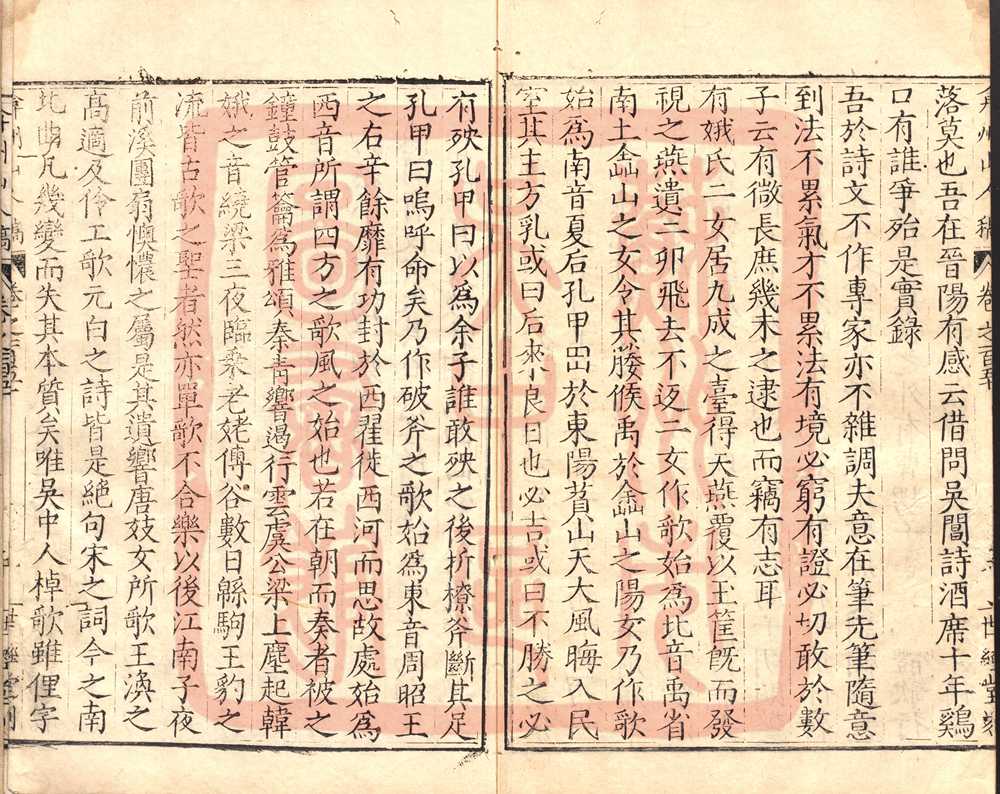 落莫也吾在晉陽有感云借問吳閶詩酒席十年鷄
口有誰爭殆是實錄
吾於詩文不作專家亦不雜調夫意在筆先筆隨意
到法不累氣才不累法有境必窮有證必切敢於數
子云有微長庶幾未之逮也而竊有志耳
有娀氏二女居九成之臺得天燕覆以玉筐旣而發
視之燕遺二卵飛去不返二女作歌始爲北音禹省
南土嵞山之女令其媵候禹於嵞山之陽女乃作歌
始爲南音夏后孔甲田於東陽萯山天大風晦入民
室其主方乳或曰后來良日也必吉或曰不勝之必
有殃孔甲曰以爲余子誰敢殃之後折橑斧斷其足
孔甲曰嗚呼命矣乃作破斧之歌始爲東音周昭王
之右辛餘靡有功封於西翟徙西河而思故處始爲
西音所謂四方之歌風之始也若在朝而奏者被之
鐘鼓管籥爲雅頌秦青響遏行雲虞公梁上塵起韓
娥之音繞梁三夜臨乘老姥傳谷數日緜駒王豹之
流皆古歌之聖者然亦單歌不合樂以後江南子夜
前溪團扇懊懷之屬是其遺響唐妓女所歌王渙之
高適及伶工歌元白之詩皆是絕句宋之詞今之南
北曲凡幾變而失其本質矣唯吳中人棹歌雖俚字